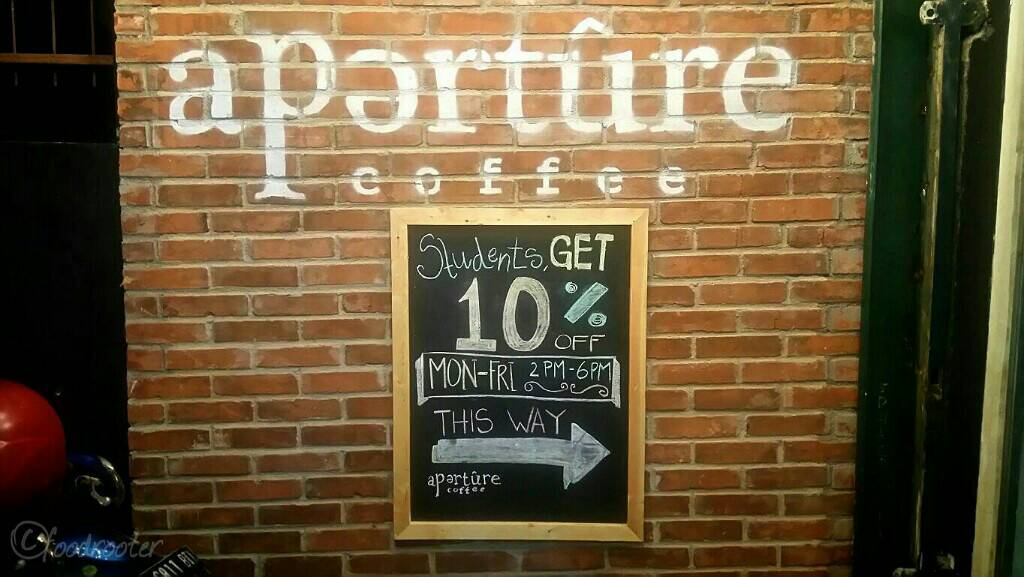 apərtûre
coffee
Students, GET
10%
OFF
MON-FRI 2PM-6PM
THIS WAY
apərtûre
coffee
©foodrooter